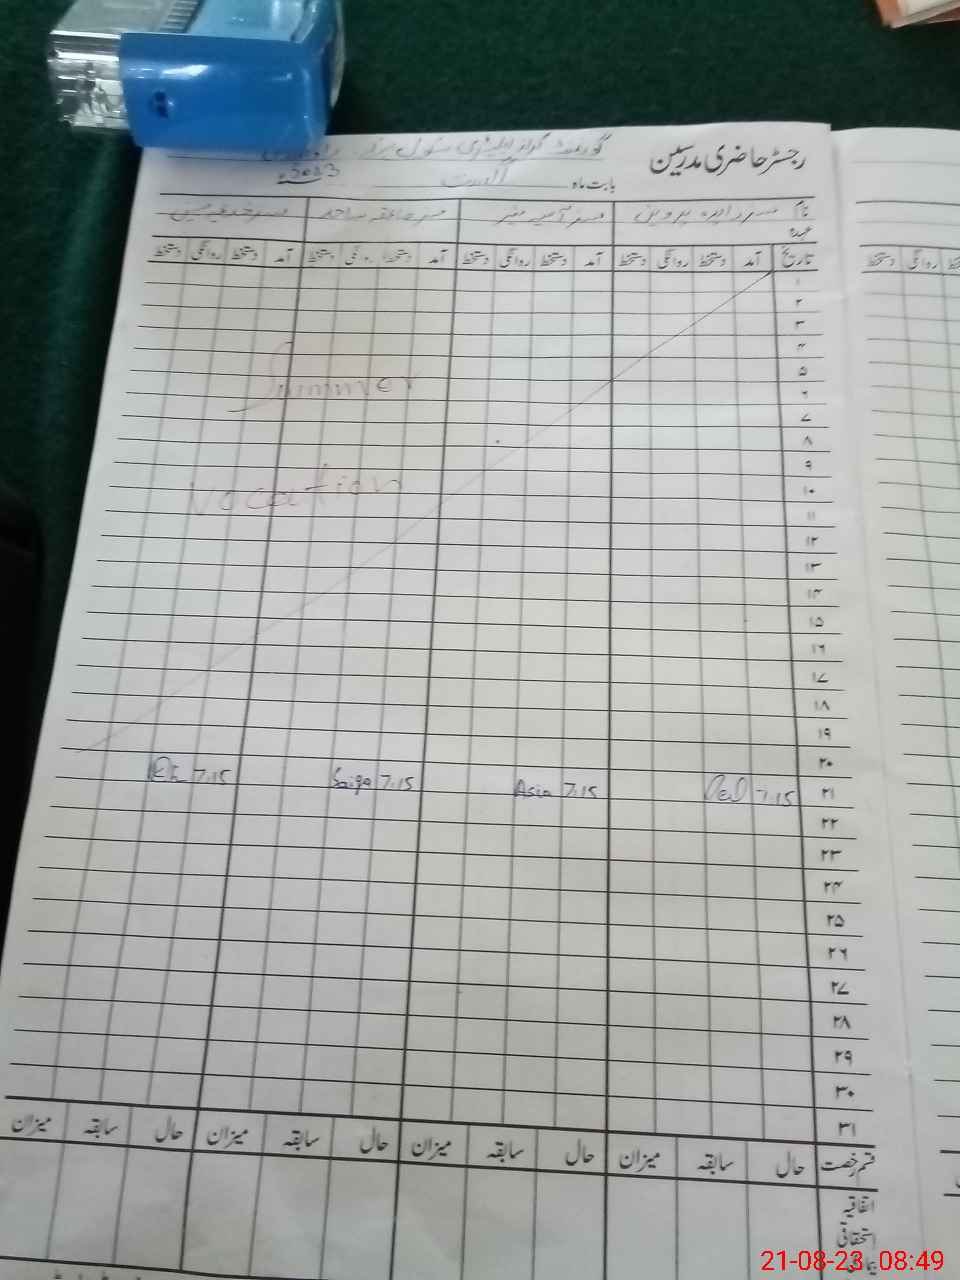 رجسٹر حاضری مدرسین
گورنمنٹ گرلز ایلیمنٹری سکول
بابت ماہ اگست 2023
نام مسز زاہدہ پروین مسز آسیہ منیر مسز صاعقہ ساجد مسز
عہدہ
تاریخ آمد دستخط روانگی دستخط آمد دستخط روانگی دستخط آمد دستخط روانگی دستخط آمد دستخط روانگی دستخط
۱
۲
۳
۴
۵
Summer
۶
۷
۸
۹
Vocation
۱۰
۱۱
۱۲
۱۳
۱۴
۱۵
۱۶
۱۷
۱۸
۱۹
۲۰
۲۱ 7:15 7:15 Asia 7:15 Saiqa 7:15
۲۲
۲۳
۲۴
۲۵
۲۶
۲۷
۲۸
۲۹
۳۰
۳۱
قسم رخصت حال سابقہ میزان حال سابقہ میزان حال سابقہ میزان حال سابقہ میزان
اتفاقیہ
استحقاقی
بیماری
روانگی دستخط
21-08-23 08:49